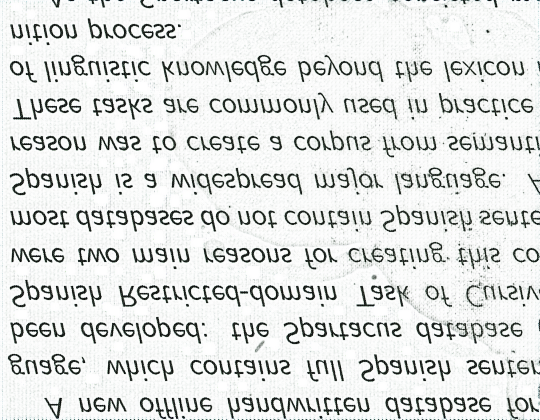 A new offline handwritten database for
guage, which contains full Spanish senten
been developed: the Spartacus database (
Spanish Restricted-domain Task of Cursiv
were two main reasons for creating this co
most databases do not contain Spanish sente
Spanish is a widespread major language. A
reason was to create a corpus from semanti
These tasks are commonly used in practice
of linguistic knowledge beyond the lexicon
nition process.
As the Spartacus database consisted